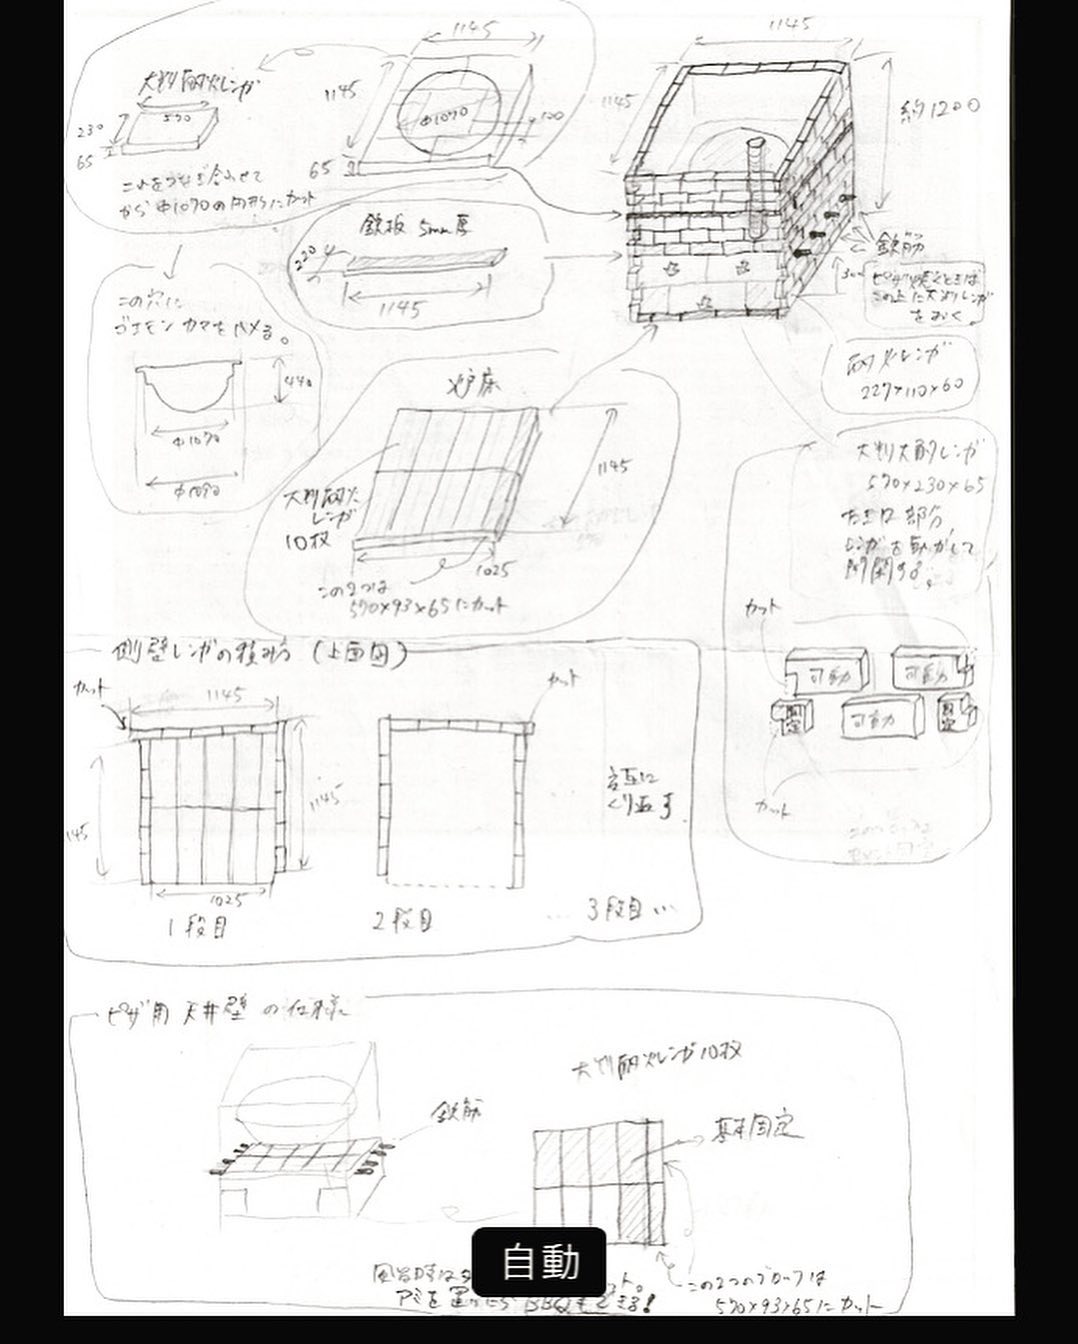 1145
1145
大判耐火レンガ
570
230
65
これをつなぎ合わせて
からΦ1070の円形にカット
1145
Φ1070
100
65
1145
1145
約1200
鉄板 5mm厚
220
1145
鉄筋
ピザ焼くときは
この上に大判レンガ
をおく
耐火レンガ
227×110×60
この穴に
ゴエモンカマをハメる。
440
Φ1070
Φ1090
炉床
1145
大判耐火
レンガ
10枚
1025
この2つは
570×93×65にカット
570×230×65
部分
レンガを動かして
開閉する。
カット
可動
可動
固定
可動
固定
カット
側壁レンガの積み方(上面図)
カット
1145
カット
1145
145
1025
交互に
くり返す
1段目
2段目
... 3段目...
ピザ用 天井壁 の仕様
大判耐火レンガ10枚
鉄筋
基本固定
自動
この2つのブロックは
570×93×65にカット